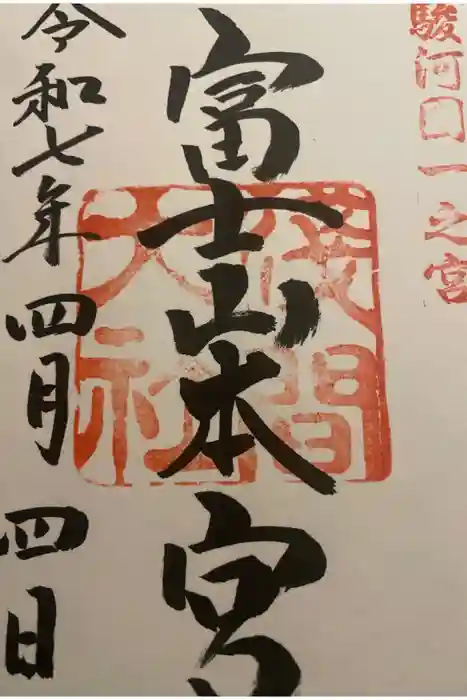 駿河国一之宮
富士山本宮
浅間大社
令和七年四月四日